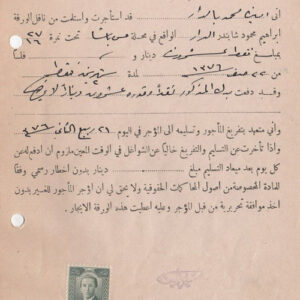 اني ... محمد ... قد استأجرت واستلمت من ناقل الورقة
ابراهيم محمود شابندر الدار الواقع في محلة حسن باشا تحت نمرة ٢٧/١٦
بمبلغ فقط عشرون دينار و فلسا
من ٢٢ صفر ١٣٧٦ لمدة شهرين فقط
وقد دفعت بدل المذكور نقدا وقدره عشرون دينارا لا غيرها
وأني متعهد بتفريغ المأجور وتسليمه الى المؤجر في اليوم ٢١ ربيع الثاني ٤٧٦
واذا تأخرت عن التسليم والتفريغ خاليًا عن الشواغل في الوقت المعين ملزوم ان ادفع له عن
كل يوم بعد ميعاد التسليم مبلغ دينار بدون اخطار رسمي وفقًا
للمادة المخصوصة من اصول المحاكمات الحقوقية ولا يحق لي ان اؤجر المأجور للغير بدون
اخذ موافقة تحريرية من قبل المؤجر وعليه اعطيت هذه الورقة الايجار.